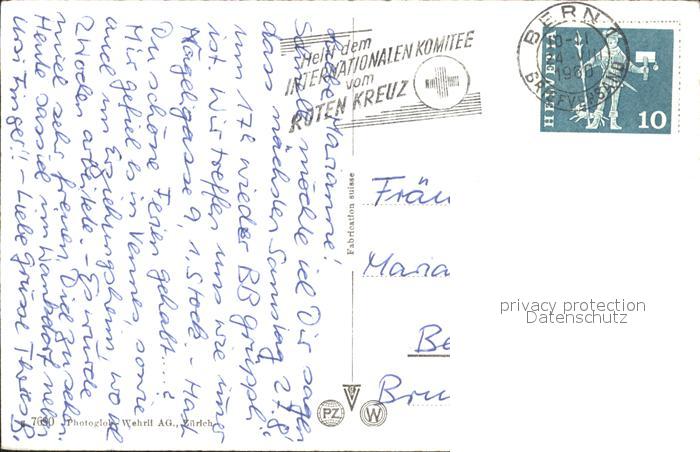 Liebe Marianne!
Schnell möchte ich Dir sagen
dass nächsten Samstag 27.8.
um 17h wieder BB grüppli
ist. Wir treffen uns wie immer
Nägeligasse 9, 1. Stock. - Hast
Du schöne Ferien gehabt...?
Mir gefiel es in Vennes, sowie
auch im Erziehungsheim, wo ich
2 Wochen arbeitete. - Es würde
mich sehr freuen, Dich zu sehen.
Heute sassest im Wankdorf neben
Liebe Grüsse Theres B.
Helft dem
INTERNATIONALEN KOMITEE
vom
ROTEN KREUZ
BERN 1
1960
BRIEFVERSAND
HELVETIA
10
Fräu
Maria
Be
Bru
Fabrication suisse
PZ
W
7690 Photoglob-Wehrli AG., Zürich
privacy protection
Datenschutz